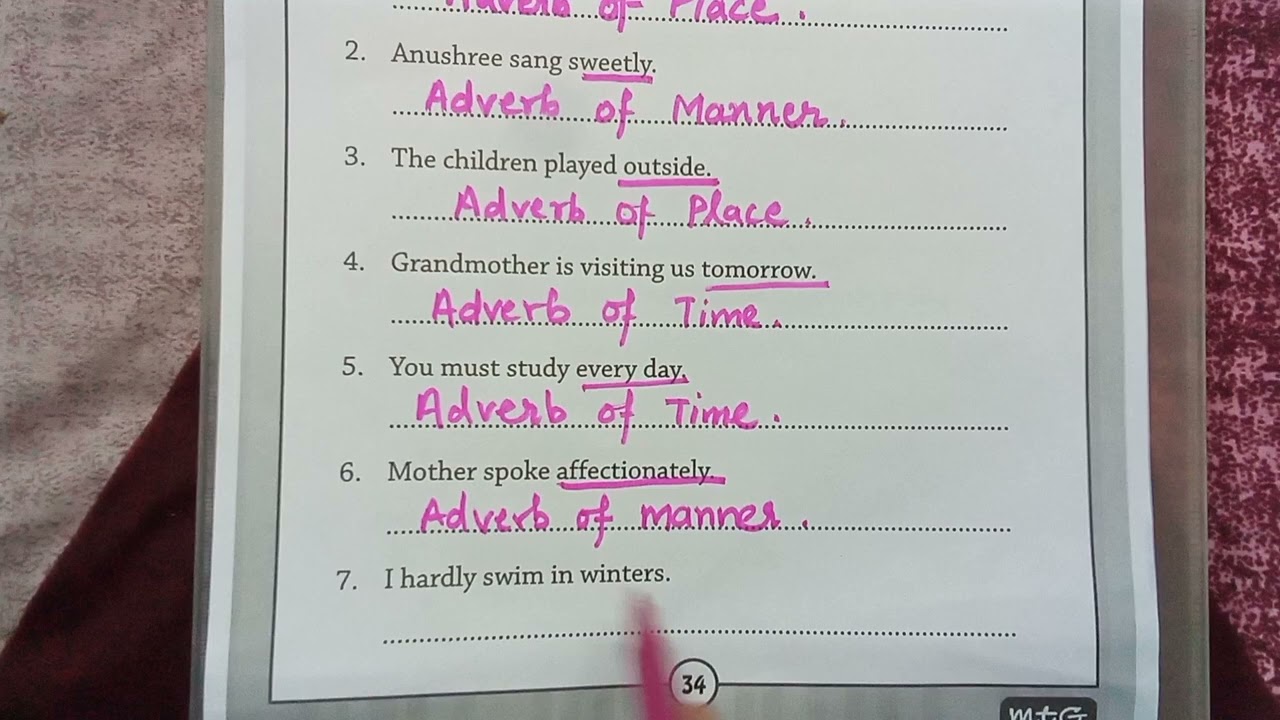 Adverb of Place.
2. Anushree sang sweetly.
Adverb of Manner.
3. The children played outside.
Adverb of Place.
4. Grandmother is visiting us tomorrow.
Adverb of Time.
5. You must study every day.
Adverb of Time.
6. Mother spoke affectionately.
Adverb of manner.
7. I hardly swim in winters.
34
MtG